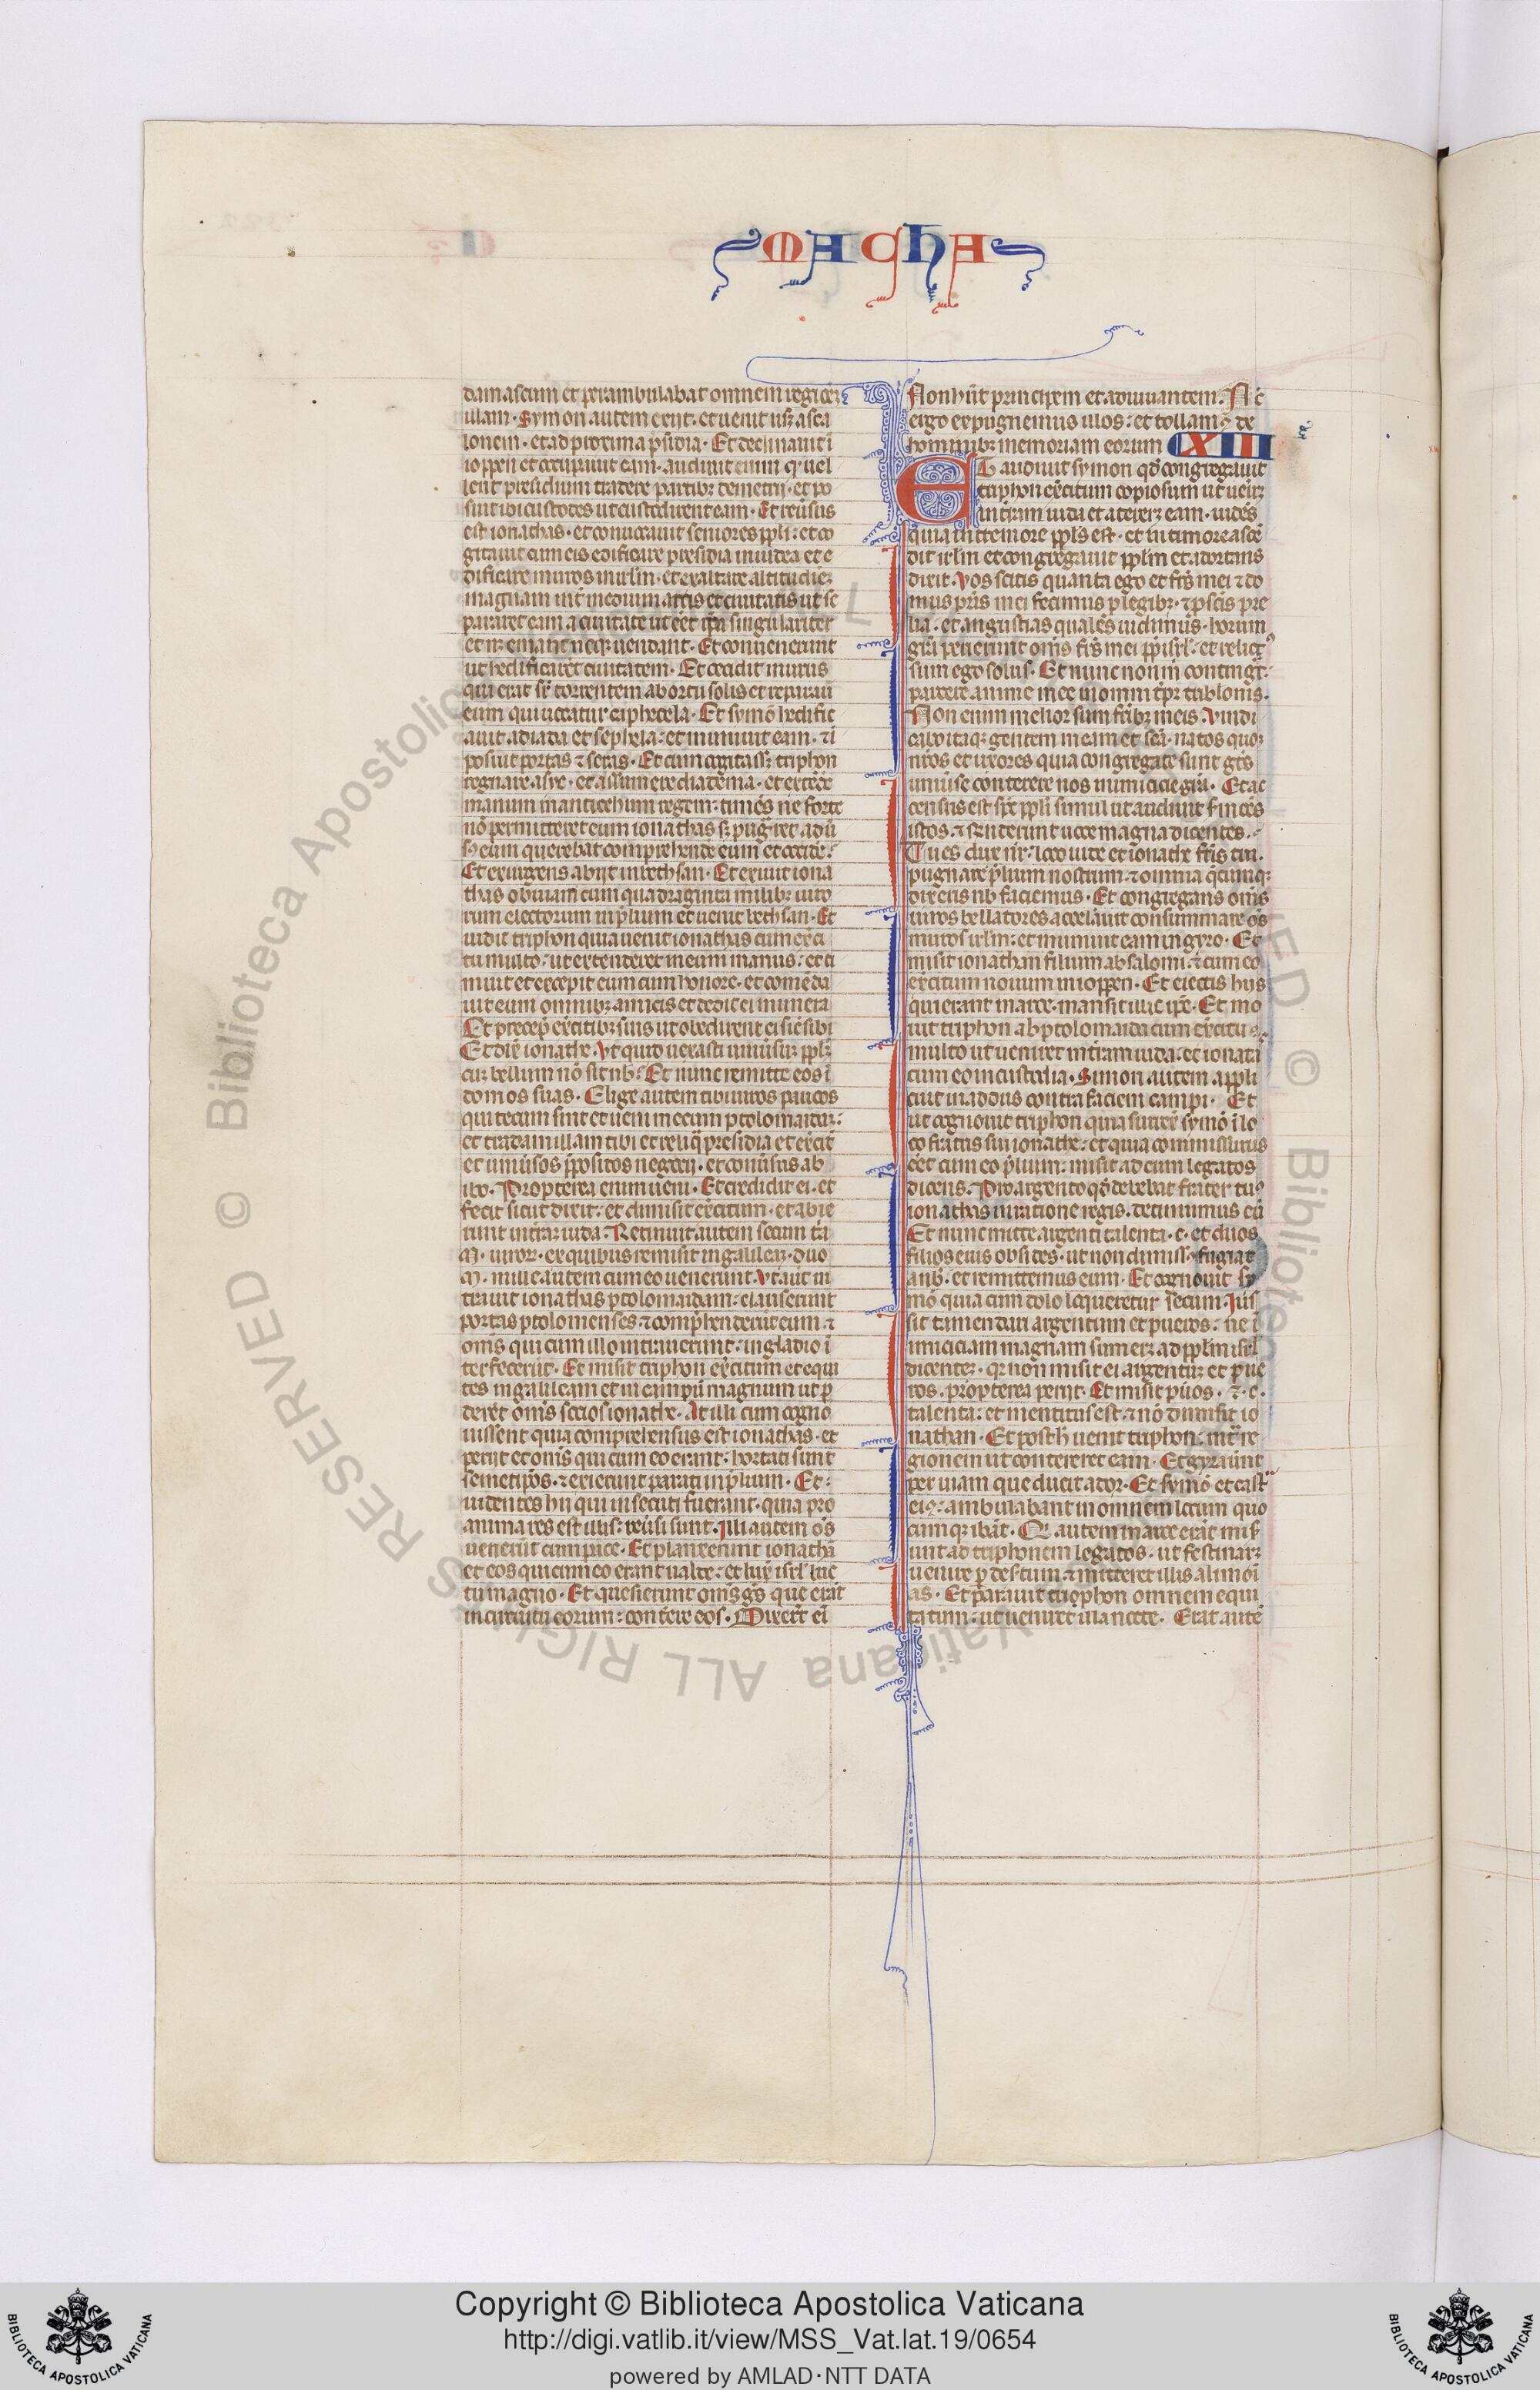 MACHA
damascum et perambulabat omnem regioēꝫ
illam. Symon autem exiit. et uenit usꝫ asca
lonem. et ad proxima p̄sidia. Et declinauit ī
ioppen et occupauit eam. audiuit enim ꝙ uel
lent presidium tradere partibꝫ demetrij. et po
suit ibi custodes ut custodirent eam. Et reūsus
est ionathas. et conuocauit seniores pp̄li: et co
gitauit cum eis edificare presidia in iudea et e
dificare muros in ierl̄m. et exaltare altitudinē
magnam int̄ medium arcis et ciuitatis ut se
pararet eam a ciuitate ut eēt ip̄a singulariter
et neꝫ emant neqꝫ uendant. Et conuenerunt
ut hedificaret ciuitatem. Et cecidit murus
qui erat sr̄ torrentem ab ortu solis et reparauī
eum qui uocatur caphecela. Et symō hedific
auit adiada et sephela: et muniuit eam. ⁊ ī
posuit portas ⁊ seras. Et cum cogitassꝫ triphon
regnare asye. et assumere diadema. et extēde
manum in anticohum regem: timēs ne forte
nō permitteret eum ionathas sꝫ pug̃ret adū
sꝫ eum querebat comprehende eum et occide.
Et exurgens abijt in bethsan. Et exiuit iona
thas obuiam cum quadraginta milibꝫ uiro
rum electorum in p̄lium et uenit bethsan. Et
uidit triphon quia uenit ionathas cum exēci
tu multo: ut extenderet in eum manus: et ti
muit et excepit eum cum honore. et comēda
uit eum omnibꝫ amicis et dedit ei munera
Et precep̄ exēcitibꝫ suis ut obedirent ei sic̄ sibi
Et dix̄ ionathe. Ut quid uexasti uniūsuꝫ pp̄lꝫ
cuꝫ bellum nō sit nb̄. Et nunc remitte eos ī
domos suas. Elige autem tibi uiros paucos
qui tecum sint et ueni mecum ptolomaidaꝫ:
et tradam illam tibi et reliq̄ presidia et exēcit
et uniūsos p̄positos negocij. et conūsus ab
ibo. Propterea enim ueni. Et credidit ei. et
fecit sicut dixit: et dimisit exēcitum. et abie
runt in t̄raꝫ iuda. Retinuit autem secum t̄ia
M. uiroꝝ. ex quibus remisit in galileaꝫ. duo
M. mille autem cum eo uenerunt. Ut aut̄ in
trauit ionathas ptolomaidam: clauserunt
portas ptolomenses. ⁊ comp̄henderūt eum. ⁊
om̄s qui cum illo intrauerunt: in gladio ī
terfecerūt. Et misit triphon exēcitum et equi
tes in galileam et in campū magnum ut p̄
deret om̄s socios ionathe. At illi cum cogno
uissent quia comprehensus est ionathas. et
perijt et om̄s qui cum eo erant: hortati sunt
semetip̄os. ⁊ exierunt parati in p̄lium. Et:
uidentes hij qui insecuti fuerant. quia pro
anima res est illis: reūsi sunt. Illi autem ōs
uenerūt cum pace. Et planxerunt ionathā
et eos qui cum eo erant ualde: et lux̄ isrl̄ luc
tu magno. Et quesierunt om̄s gs̄ que erāt
in circuitu eorum: contēre eos. Dixerūt eī
Non hn̄t principem et adiuuantem. Nc̄
ergo expugnemus illos: et tollamꝰ de
hominibꝫ memoriam eorum CXIII
ET audiuit symon qd̄ congregauit
triphon exēcitum copiosum ut ueīꝫ
in t̄ram iuda et attereꝫ eam. uidēs
quia in tremore pp̄ls est. et in timore ascē
dit irl̄m et congregauit pp̄lm et adortans
dixit. Vos scitis quanta ego et frs̄ mei ⁊ do
mus pr̄is mei fecimus p̄ legibꝫ. ⁊ p̄ scīs pre
lia. et angustias quales uidimus. horum
gr̄a perierunt om̄s frs̄ mei pp̄ isrl̄. et relictꝰ
sum ego solus. Et nunc non m̄ contingt̄
parcere anime mee in omni tp̄r tribl̄onis.
Non enim melior sum frībꝫ meis. Vindi
cabo itaqꝫ gentem meam et scā. natos quoqꝫ
nr̄os et uxores quia congregate sunt gēs
uniūse conterere nos inimicicie gr̄a. Et ac
census est spc̄ pp̄li simul ut audiuit s̄mōēs
istos. ⁊ rn̄derunt uoce magna dicentes.
Tu es dux nr̄: loco iude et ionathe fr̄is tui.
pugnate p̄lium nostrum. ⁊ omnia q̄cumqꝫ
dixeris nb̄ faciemus. Et congregans om̄s
uiros bellatores accelāuit consummare ōs
muros irl̄m: et muniuit eam in gyro. Et
misit ionathan filium absalomi. ⁊ cum eo
exēcitum nouum in ioppen. Et eiectis hijs
qui erant in arce. mansit illic ip̄e. Et mo
uit triphon ab ptolomaida cum exēcitu
multo ut ueniret in t̄ram iuda. et ionatā
cum eo in custodia. Simon autem appli
cuit in adous contra faciem campi. Et
ut cognouit triphon quia surrex̄ symō ī lo
co fratris sui ionathe: et quia commissurus
eēt cum eo p̄lium: misit ad eum legatos
dicens. Pro argento qd̄ debebat frater tuꝰ
ionathas in ratione regis. detinuimus eū
Et nunc mitte argenti talenta. c. et duos
filios eius obsides. ut non dimiss. fugiat
a nb̄. et remittemus eum. Et cognouit sy
mō quia cum dolo loqueretur secum. Ius
sit tamen dari argentum et pueros: ne ī
imiciciam magnam sumeꝫ ad pp̄lm isrl̄
dicenteꝫ. qꝫ non misit ei argentuꝫ et pue
ros. propterea perijt. Et misit pūos. ⁊ .c.
talenta: et mentitus est. ⁊ nō dimisit io
nathan. Et post h̄ uenit triphon: int̄ re
gionem ut contereret eam. Et gyrauīnt
per uiam que ducit ador. Et symō et cast̄
eiꝰ: ambulabant in omnem locum quo
cumqꝫ ibāt. Qi autem in arce erāt mis̄
unt ad triphonem legatos. ut festinaꝫ
uenire p̄ desertum. ⁊ mitteret illis alimoī
as. Et parauit triophon omnem equi
tatum: ut ueniret illa nocte. Erat autē
Copyright © Biblioteca Apostolica Vaticana
http://digi.vatlib.it/view/MSS_Vat.lat.19/0654
powered by AMLAD·NTT DATA